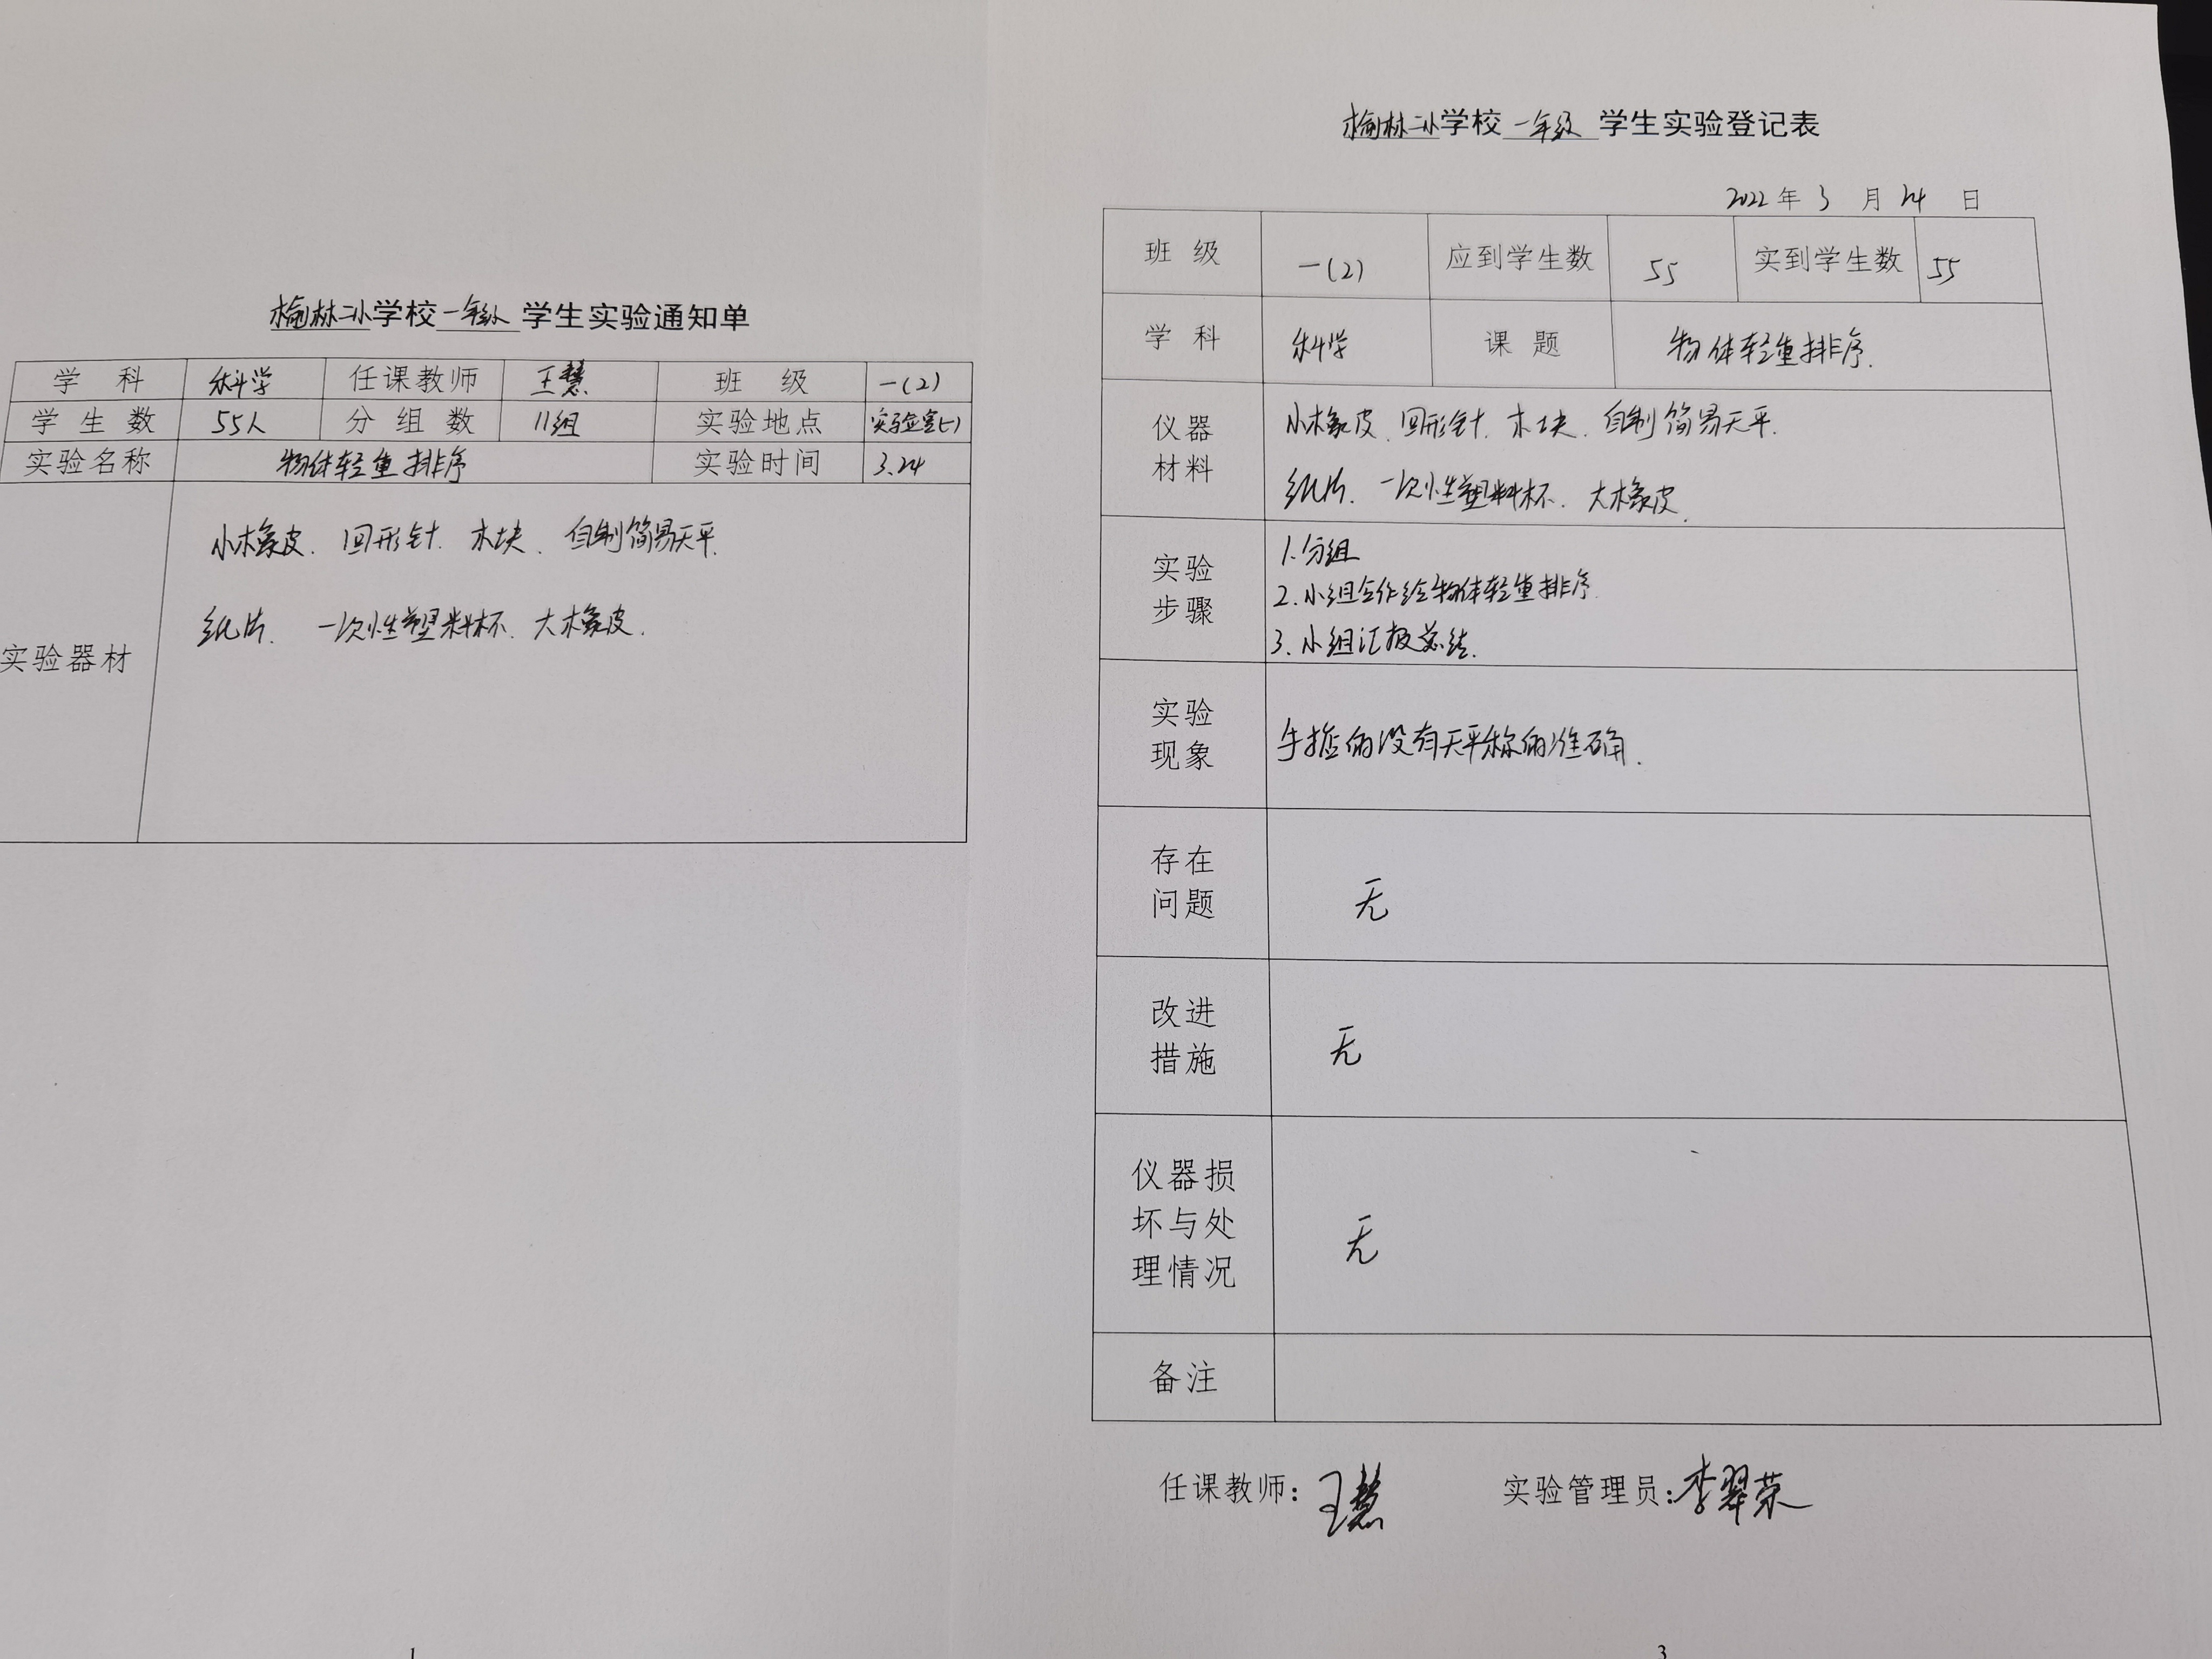 榆林二小学校一年级 学生实验通知单
学 科 科学 任课教师 王慧 班 级 一(2)
学 生 数 55人 分 组 数 11组 实验地点 实验室(一)
实验名称 物体轻重排序 实验时间 3.24
实验器材
小橡皮. 回形针. 木块. 自制简易天平.
纸片. 一次性塑料杯. 大橡皮.
1
榆林二小学校 一年级 学生实验登记表
2022年 3 月 24 日
班 级 一(2) 应到学生数 55 实到学生数 55
学 科 科学 课 题 物体轻重排序.
仪器
材料
小橡皮. 回形针. 木块. 自制简易天平.
纸片. 一次性塑料杯. 大橡皮.
实验
步骤
1.分组
2.小组合作给物体轻重排序.
3.小组汇报总结.
实验
现象
手掂的没有天平称的准确.
存在
问题
无
改进
措施
无
仪器损
坏与处
理情况
无
备注
任课教师: 王慧 实验管理员: 李翠荣
3